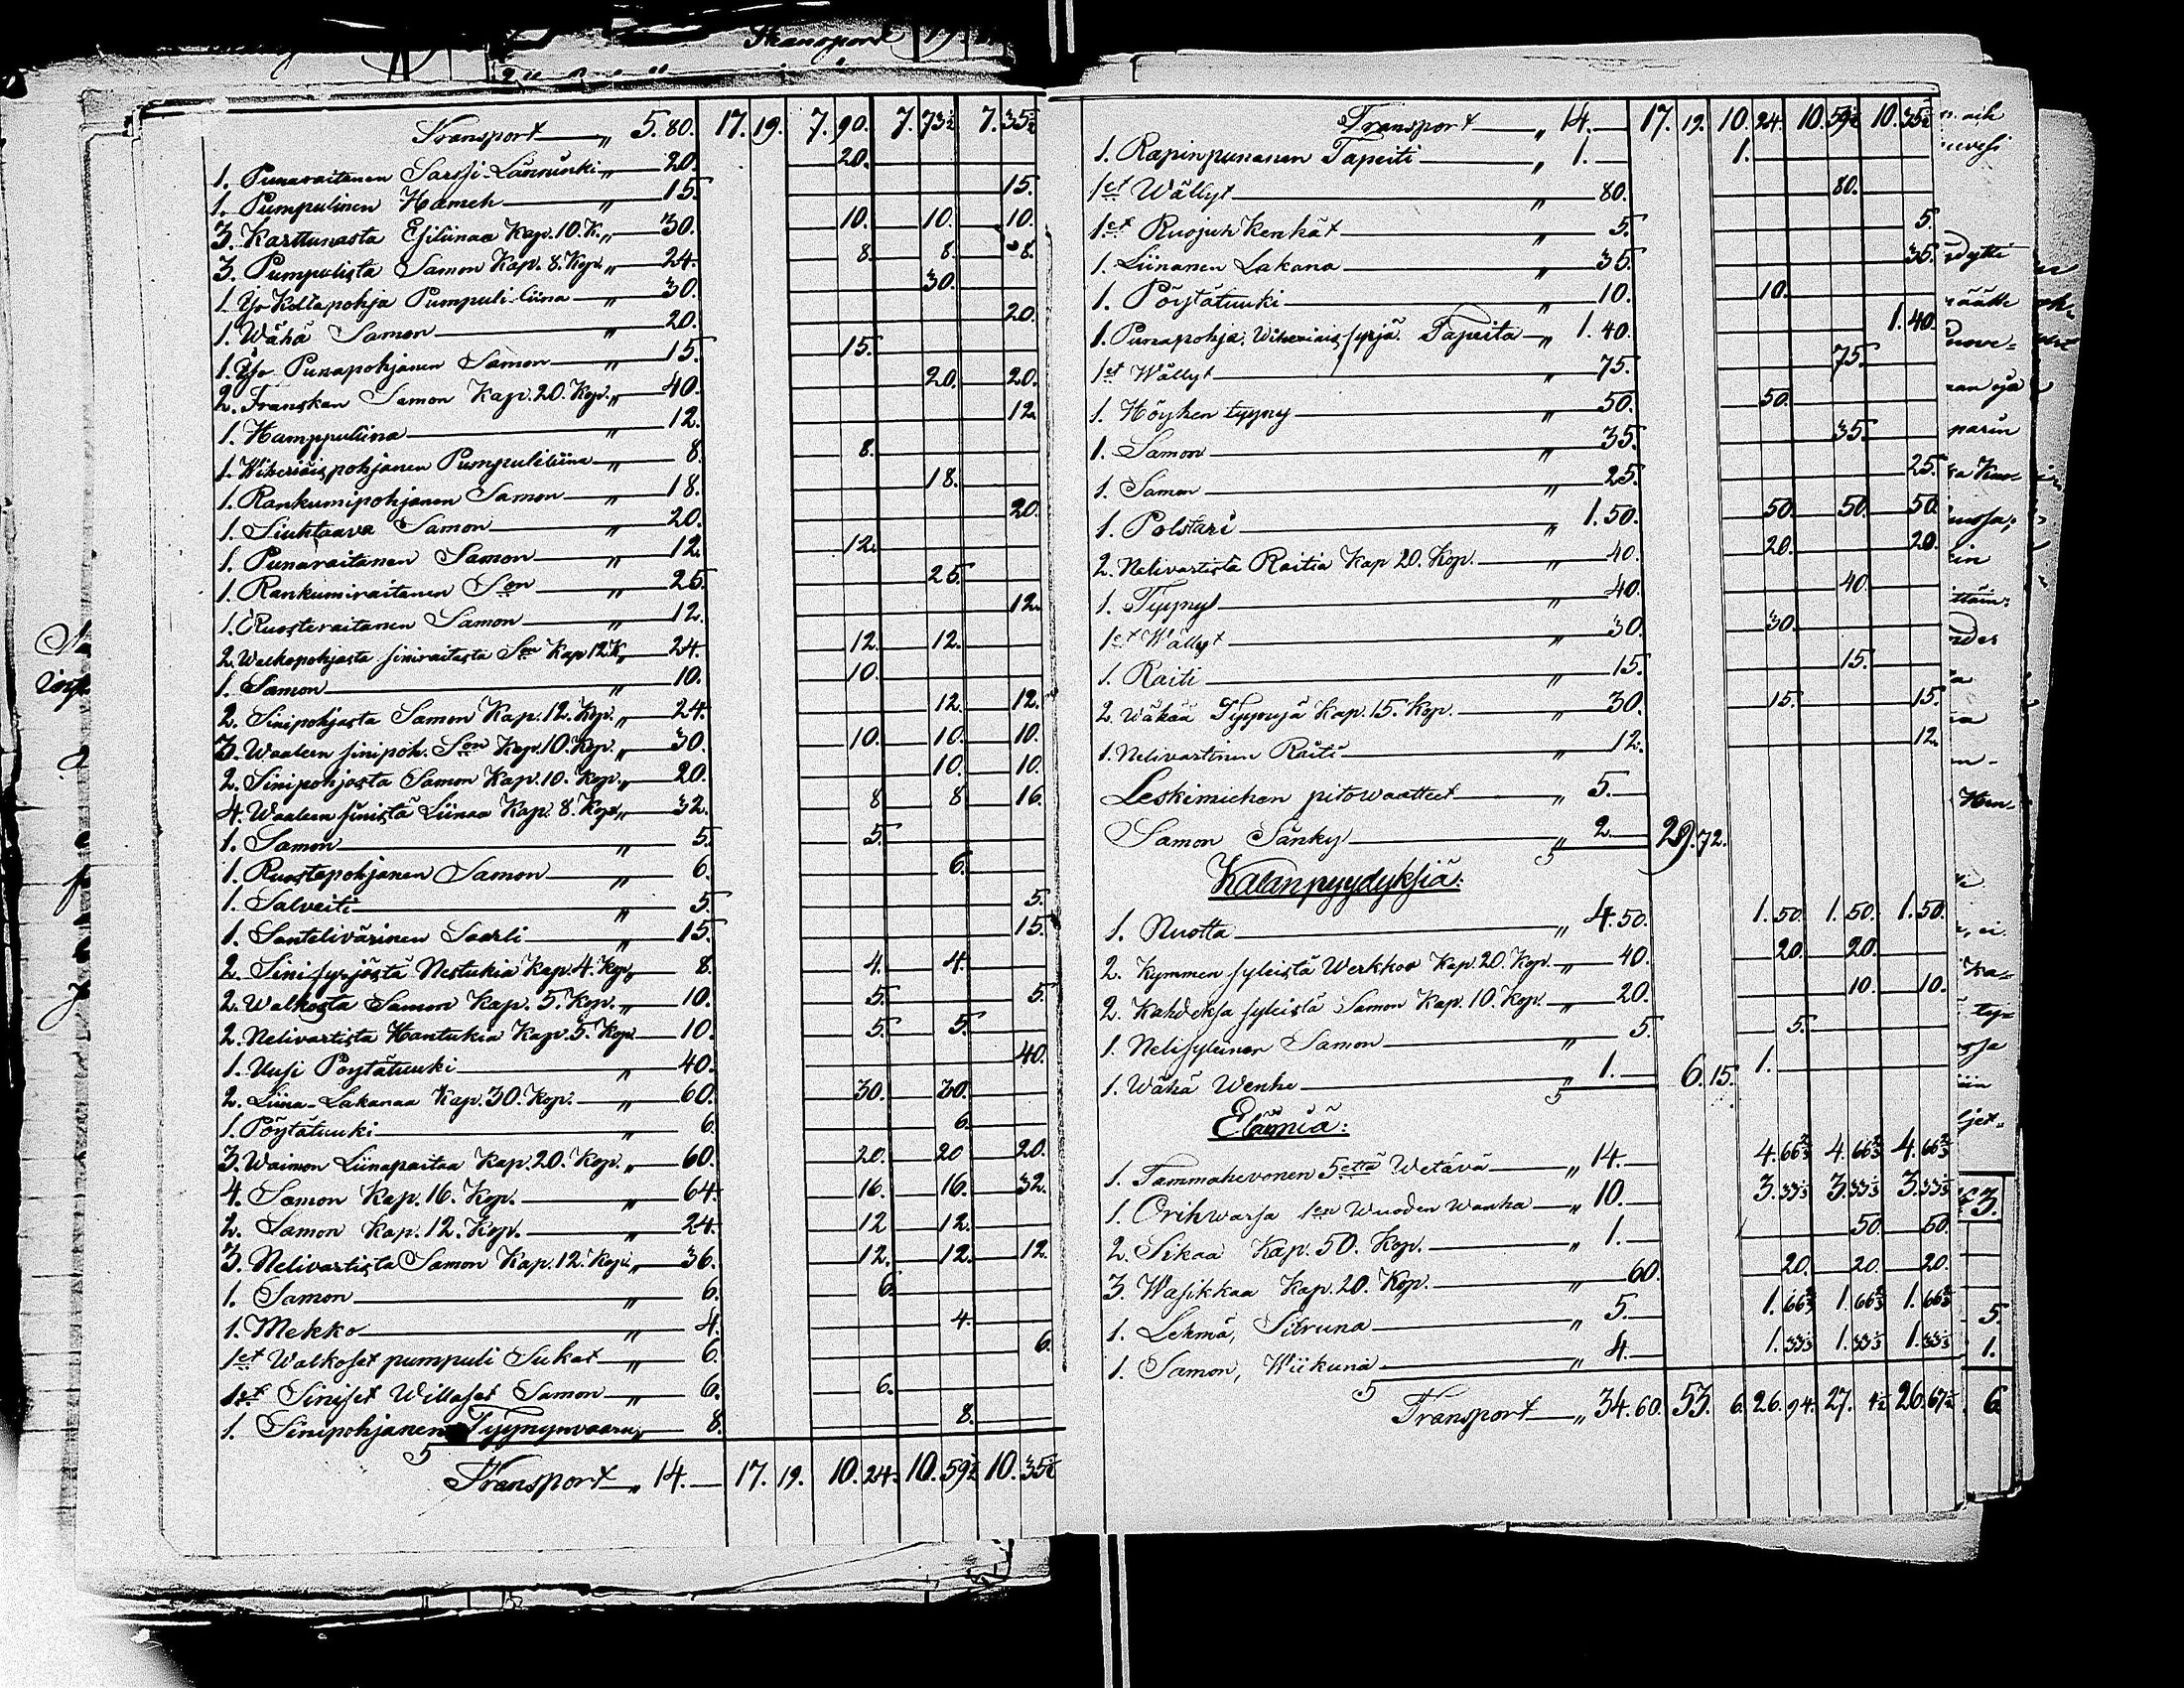 Transport „ 5. 80. 17. 19. 7. 90. 7. 73½ 7. 35½
1. Punaraitanen Sarssi-Lännünki „ 20. 20.
1. Pumpulinen Hameh „ 15. 15.
3. Karttunasta Esiliinaa Kap. 10. K. „ 30. 10. 10. 10.
3. Pumpulista Samon Kap. 8. Kop. „ 24. 8. 8. 8.
1. Keltapohja Pumpuli-liina „ 30. 30.
1. Wähä Samon „ 20. 20.
1. Punapohjanen Samon „ 15. 15.
2. Franskan Samon Kap. 20. Kop. „ 40. 20. 20.
1. Hamppuliina „ 12. 12.
1. Wiheriäispohjanen Pumpuliliina „ 8. 8.
1. Rankumipohjanen Samon „ 18. 18.
1. Siuhtaava Samon „ 20. 20.
1. Punaraitanen Samon „ 12. 12.
1. Rankumiraitanen Son „ 25. 25.
1. Ruosteraitanen Samon „ 12. 12.
2. Walkopohjasta siniraitasta Son Kap 12 K. „ 24. 12. 12.
1. Samon „ 10. 10.
2. Sinipohjasta Samon Kap. 12. Kop. „ 24. 12. 12.
3. Waaleen sinipoh. Son Kap. 10. Kop. „ 30. 10. 10. 10.
2. Sinipohjasta Samon Kap. 10. Kop. „ 20. 10. 10.
4. Waaleen sinistä Liinaa Kap. 8. Kop. „ 32. 8 8 16.
1. Samon „ 5. 5.
1. Ruostepohjanen Samon „ 6. 6.
1. Salveiti „ 5. 5.
1. Santelivärinen Saarli „ 15. 15.
2. Sinisyrjästä Nestukia Kap. 4. Kop. „ 8. 4. 4.
2. Walkosta Samon Kap. 5. Kop. „ 10. 5. 5.
2. Nelivartista Hantukia Kap. 5. Kop. 10. 5. 5.
1. Uusi Pöytätuuki „ 40. 40.
2. Liina-Lakanaa Kap. 30. Kop. „ 60. 30. 30.
1. Pöytätuuki „ 6. 6.
3. Waimon Liinapaitaa Kap. 20. Kop. „ 60. 20. 20 20.
4. Samon Kap. 16. Kop. „ 64. 16. 16. 32.
2. Samon Kap. 12. Kop. „ 24. 12 12.
3. Nelivartista Samon Kap. 12. Kop. „ 36. 12. 12. 12.
1. Samon „ 6. 6.
1. Mekko „ 4. 4.
1et Walkoset pumpuli Sukat „ 6. 6.
1et Siniset Willaset Samon „ 6. 6.
1. Sinipohjanen Tyynynwaaru „ 8. 8.
Transport „ 14. 17. 19. 10. 24. 10. 59½ 10. 35½
Transport „ 14. 17. 19. 10. 24. 10. 59½ 10. 35½
1. Rapinpunanen Tapeiti „ 1. 1.
1et Wällyt „ 80. 80.
1et Ruojuh Kenkät „ 5. 5.
1. Liinanen Lakana „ 35. 35.
1. Pöytätuuki „ 10. 10.
1. Punapohja, Wiheriäis-syrjä Tapeita „ 1. 40. 1. 40.
1et Wällyt „ 75. 75.
1. Höyhen tyyny „ 50. 50.
1. Samon „ 35. 35.
1. Samon „ 25. 25.
1. Polstari „ 1. 50. 50. 50. 50.
2. Nelivartista Raitia Kap 20. Kop. „ 40. 20. 20.
1. Tyynyt „ 40. 40.
1et Wällyt „ 30. 30.
1. Raiti „ 15. 15.
2. Wähää Tyynyjä Kap. 15. Kop. „ 30. 15. 15.
1. Nelivartinen Raiti „ 12. 12.
Leskimiehen pitowaatteet „ 5.
Samon Sänky „ 2. 29. 72.
Kalanpyydyksiä:
1. Nuotta „ 4. 50. 1. 50. 1. 50. 1. 50.
2. Kymmen syleistä Werkkoa Kap. 20. Kop. „ 40. 20. 20.
2. Kahdeksa syleistä Samon Kap. 10. Kop. „ 20. 10. 10.
1. Nelisyleinen Samon „ 5. 5.
1. Wähä Wenhe „ 1. 6. 15. 1.
Elämiä:
1. Tammahevonen 5että Wetävä „ 14. 4. 66⅔ 4. 66⅔ 4. 66⅔
1. Orihwarsa 1en Wuoden Wanha „ 10. 3. 33⅓ 3. 33⅓ 3. 33⅓
2. Sikaa Kap. 50. Kop. „ 1. 50. 50.
3. Wasikkaa Kap. 20. Kop. „ 60. 20. 20. 20.
1. Lehmä, Silruna „ 5. 1. 66⅔ 1. 66⅔ 1. 66⅔
1. Samon, Wiikuna „ 4. 1. 33⅓ 1. 33⅓ 1. 33⅓
Transport „ 34. 60. 53. 6. 26. 94. 27. 4½ 26. 67½